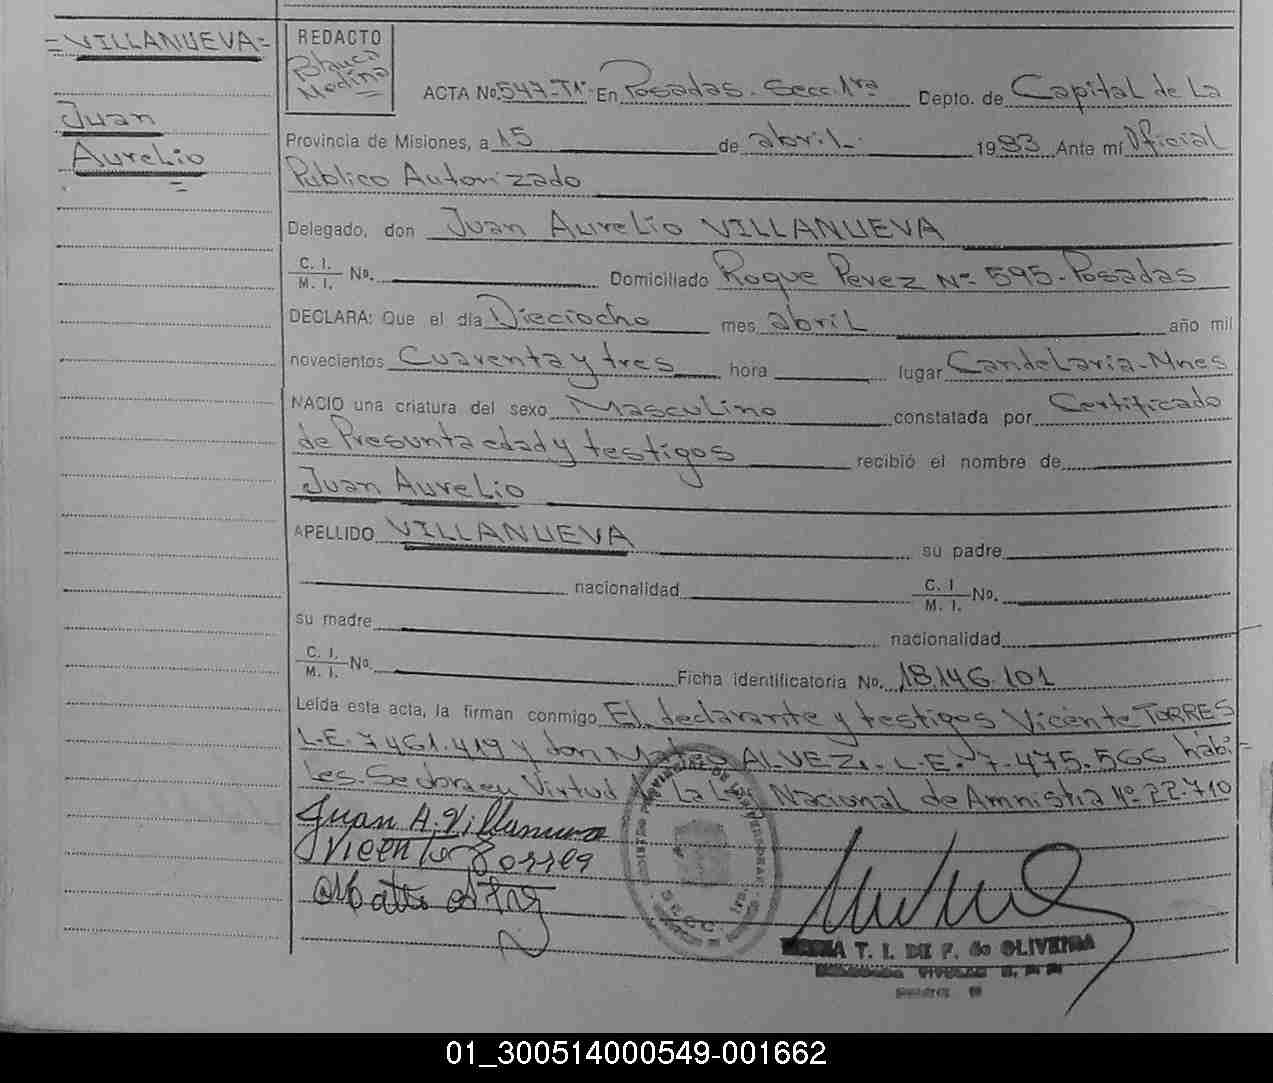 =VILLANUEVA=
Juan
Aurelio
=
REDACTO
Blanca
Medina
ACTA No. 547-T1º- En Posadas. Secc. 1ra Depto. de Capital de La
Provincia de Misiones, a 15 de abril.- 1983 Ante mí Oficial
Público Autorizado
Delegado, don Juan Aurelio VILLANUEVA
C. I.
M. I. No. Domiciliado Roque Perez Nº- 595-Posadas
DECLARA: Que el día Dieciocho mes abril año mil
novecientos Cuarenta y tres hora lugar Candelaria-Mnes
NACIO una criatura del sexo Masculino constatada por Certificado
de Presunta edad y testigos recibió el nombre de
Juan Aurelio
APELLIDO VILLANUEVA su padre
nacionalidad C. I
M. I. No.
su madre nacionalidad
C. I.
M. I. No. Ficha identificatoria No. 18.146.101
Leída esta acta, la firman conmigo El declarante y testigos Vicente TORRES
L.E. 7.461.419 y don ALVEZ.- L.E. 7.475.566 hábi=
les. Se labra en Virtud La Ley Nacional de Amnistia Nº 22.710
Juan A. Villanueva
Vicente Torres
T. I. DE F. de OLIVEIRA
01_300514000549-001662